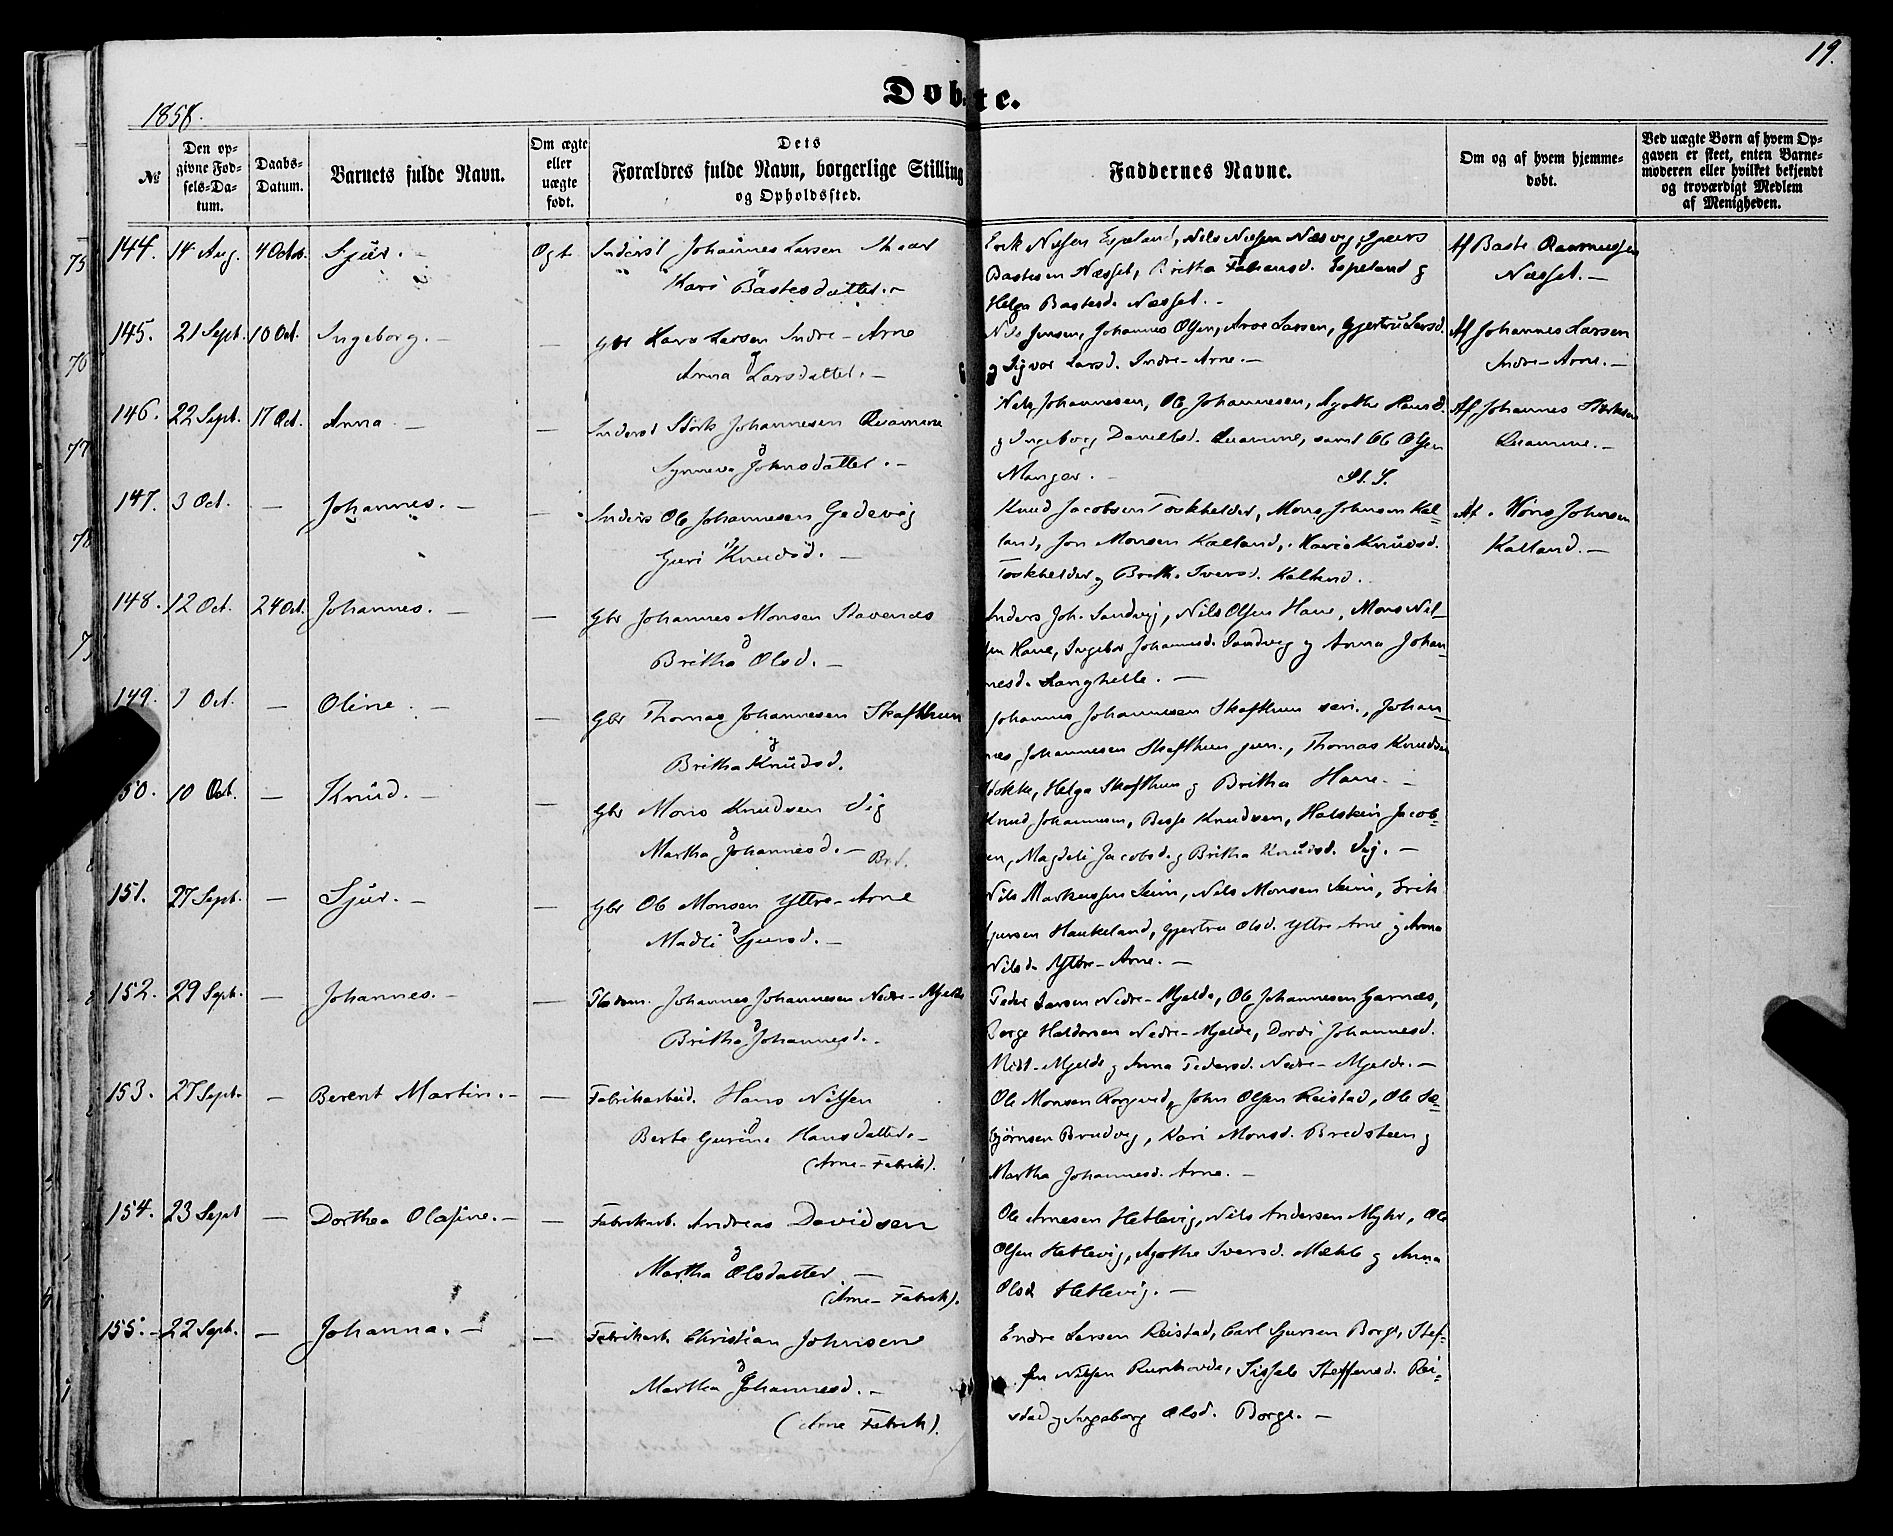 19.
Døbte.
1858.
№
Den op-
givne Fød-
sels-Da-
tum.
Daabs-
Datum.
Barnets fulde Navn.
Om ægte
eller
uægte
født.
Dets
Forældres fulde Navn, borgerlige Stilling
og Opholdssted.
Faddernes Navne.
Om og af hvem hjemme-
døbt.
Ved uægte Børn af hvem Op-
gaven er skeet, enten Barne-
moderen eller hvilket bekjendt
og troværdigt Medlem
af Menigheden.
144. 14 Aug. 4 Octob. Sjur. - Ægt. Inderst Johannes Larsen
Kari Bastesdatter. -
Erik Nilsen Espeland, Nils Nilsen Næsvig, Sjurs
Bastesen Næsset, Britha Espeland og
Helga Bastesd. Næsset. -
Af Baste Rasmussen
Næsset. -
145. 21 Sept. 10 Oct. Ingeborg. - — Gbr Lars Larsen Indre-Arne
Anna Larsdatter. -
Nils Jensen, Johannes Olsen, Arne Larsen, Gjertru Larsd.
og Sigvor Larsd. Indre-Arne. -
Af Johannes Larsen
Indre-Arne. -
146. 22 Sept. 17 Oct. Anna. - — Inderst Størk Johannesen Quamme
Synneva Johnsdatter. -
Nels Johannesen, Ole Johannesen, Agothe Hansd.
og Ingeborg Danielsd. Quamme, samt Ole Olsen
Manger. -
Af Johannes Størksen
Quamme. -
147. 3 Oct. — Johannes. - — Inders Ole Johannesen Gedevig
Guri Knudsd. -
Knud Jacobsen Toskhelder, Mons Johnsen Kal-
land, Jon Monsen Kalland, Marie Knudsd.
Toskhelder og Brith. Iversd. Kalland.
Af. Mons Johnsen
Kalland. -
148. 12 Oct. 24 Oct. Johannes. - — Gbr Johannes Monsen Stavenes
Britha Olsd. -
Anders Joh. Sandvig, Nils Olsen Hane, Mons Nil-
sen Hane, Ingebor Johannesd. Sandvig og Anna Johan-
nesd. Langhelle. -
149. 7 Oct. — Oline. - — Gbr Thomas Johannesen Skafthun
og
Britha Knudsd.
Johannes Johannesen Skafthun sen., Johan-
nes Johannesen Skafthun jun., Thomas Knudsen
Helga Skafthun og Britha Hane. -
150. 10 Oct. — Knud. - — Gbr Mons Knudsen Sig
Martha Johannesd. -
Knud Johannesen, Besse Knudsen, Halstein Jacob-
sen, Magdeli Jacobsd. og Britha Knudsd. Sig. -
151. 27 Sept. — Sjur. - — Gbr Ole Monsen Yttre-Arne
Madli Sjursd. -
Nils Markussen Seim, Nels Monsen Seim, Erik
Sjursen Haukeland, Gjertru Olsd. Yttre Arne og Anna
Nilsd. Yttre-Arne. -
152. 29 Sept. — Johannes. - — Johannes Johannesen Nedre-Mjelde
Britha Johannesd.
Peder Larsen Nedre-Mjelde, Ole Johannesen Garnæs,
Børge Haldorsen Nedre-Mjelde, Dordi Johannesd.
Midt-Mjelde og Anna Pedersd. Nedre-Mjelde. -
153. 27 Sept. — Berent Martin. - — Fabrikarbeid. Hans Nilsen
Berte Gurine Hansdatter. -
(Arne-Fabrik).
Ole Monsen John Olsen Reistad, Ole Sæ-
bjørnsen Brudvig, Kari Monsd. Bredsteen og
Martha Johannesd. Arne. -
154. 23 Sept — Dorthea Olasine. - — Fabrikarb. Andreas Davidsen
Martha Olsdatter. -
(Arne-Fabrik).
Ole Arnesen Hetlevig, Nils Andersen Myhr, Ole
Olsen Hetlevig, Agothe Iversd. Mæhle og Anna
Olsd. Hetlevig. -
155. - 22 Sept. — Johanna. - — Fabrikarb. Christian Johnsen
Martha Johannesd. -
(Arne Fabrik).
Endre Larsen Reistad, Carl Sjursen Borge, Stef-
fen Nilsen Runhovde, Sissele Steffensd. Rei-
stad og Ingeborg Olsd. Borge. -